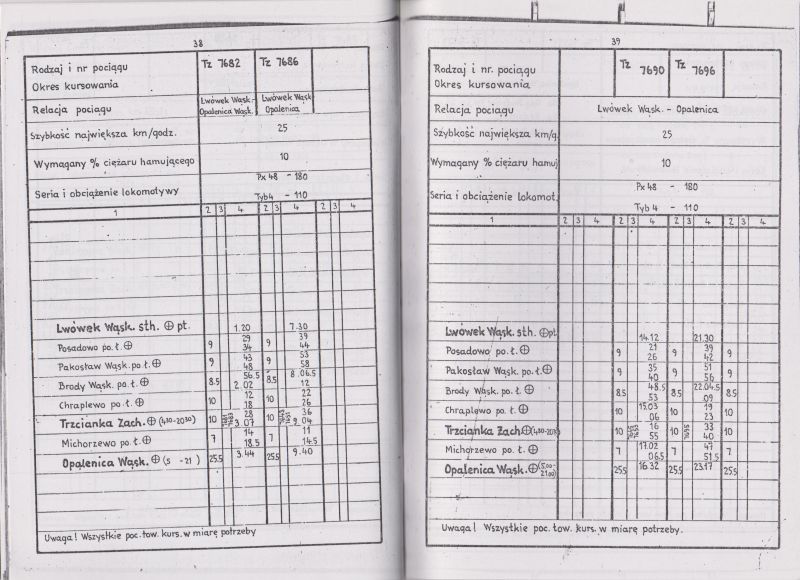 38
Rodzaj i nr pociągu Tz 7682 Tz 7686
Okres kursowania
Relacja pociągu Lwówek Wąsk.- Lwówek Wąsk
Opalenica Wąsk. Opalenica
Szybkość największa km/godz. 25
Wymagany % ciężaru hamującego 10
Px 48 - 180
Seria i obciążenie lokomotywy
Tyb4 - 110
1 2 3 4 2 3 4 2 3 4
Lwówek Wąsk. sth. ⊕ pt. 1.20 7.30
29 39
Posadowo po. ł. ⊕ 9 34 9 44
43 53
Pakosław Wąsk. po. ł. ⊕ 9 48 9 58
56.5 8.06.5
Brody Wąsk. po. ł. ⊕ 8.5 2.02 8.5 12
12 22
Chraplewo po. ł. ⊕ 10 18 10 26
28 36
Trzcianka Zach. ⊕ (430-2030) 10 3.07 10 9.04
14 11
Michorzewo po. ł. ⊕ 7 18.5 7 14.5
Opalenica Wąsk. ⊕ (5 -21 ) 25.5 3.44 25.5 9.40
Uwaga! Wszystkie poc. tow. kurs. w miarę potrzeby
39
Rodzaj i nr. pociągu Tz 7690 Tz 7696
Okres kursowania
Relacja pociągu Lwówek Wąsk. - Opalenica
Szybkość największa km/g. 25
Wymagany % ciężaru hamuj 10
Px 48 - 180
Seria i obciążenie lokomot.
Tyb 4 - 110
1 2 3 4 2 3 4 2 3 4
Lwówek Wąsk. sth. ⊕ pt. 14.12 21.30
21 39
Posadowo po. ł. ⊕ 9 26 9 42 9
35 51
Pakosław Wąsk. po. ł. ⊕ 9 40 9 56 9
48.5 22.04.5
Brody Wąsk. po. ł. ⊕ 8.5 53 8.5 09 8.5
15.03 19
Chraplewo po. ł. ⊕ 10 06 10 23 10
16 33
Trzcianka Zach ⊕ 10 55 10 40 10
17.02 47
Michorzewo po. ł. ⊕ 7 06.5 7 51.5 7
Opalenica Wąsk. ⊕ (5.00-21.00) 25.5 16.32 25.5 23.17 25.5
Uwaga! Wszystkie poc. tow. kurs. w miarę potrzeby.